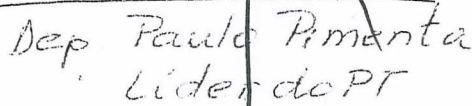 Dep. Paulo Pimenta
Líder do PT